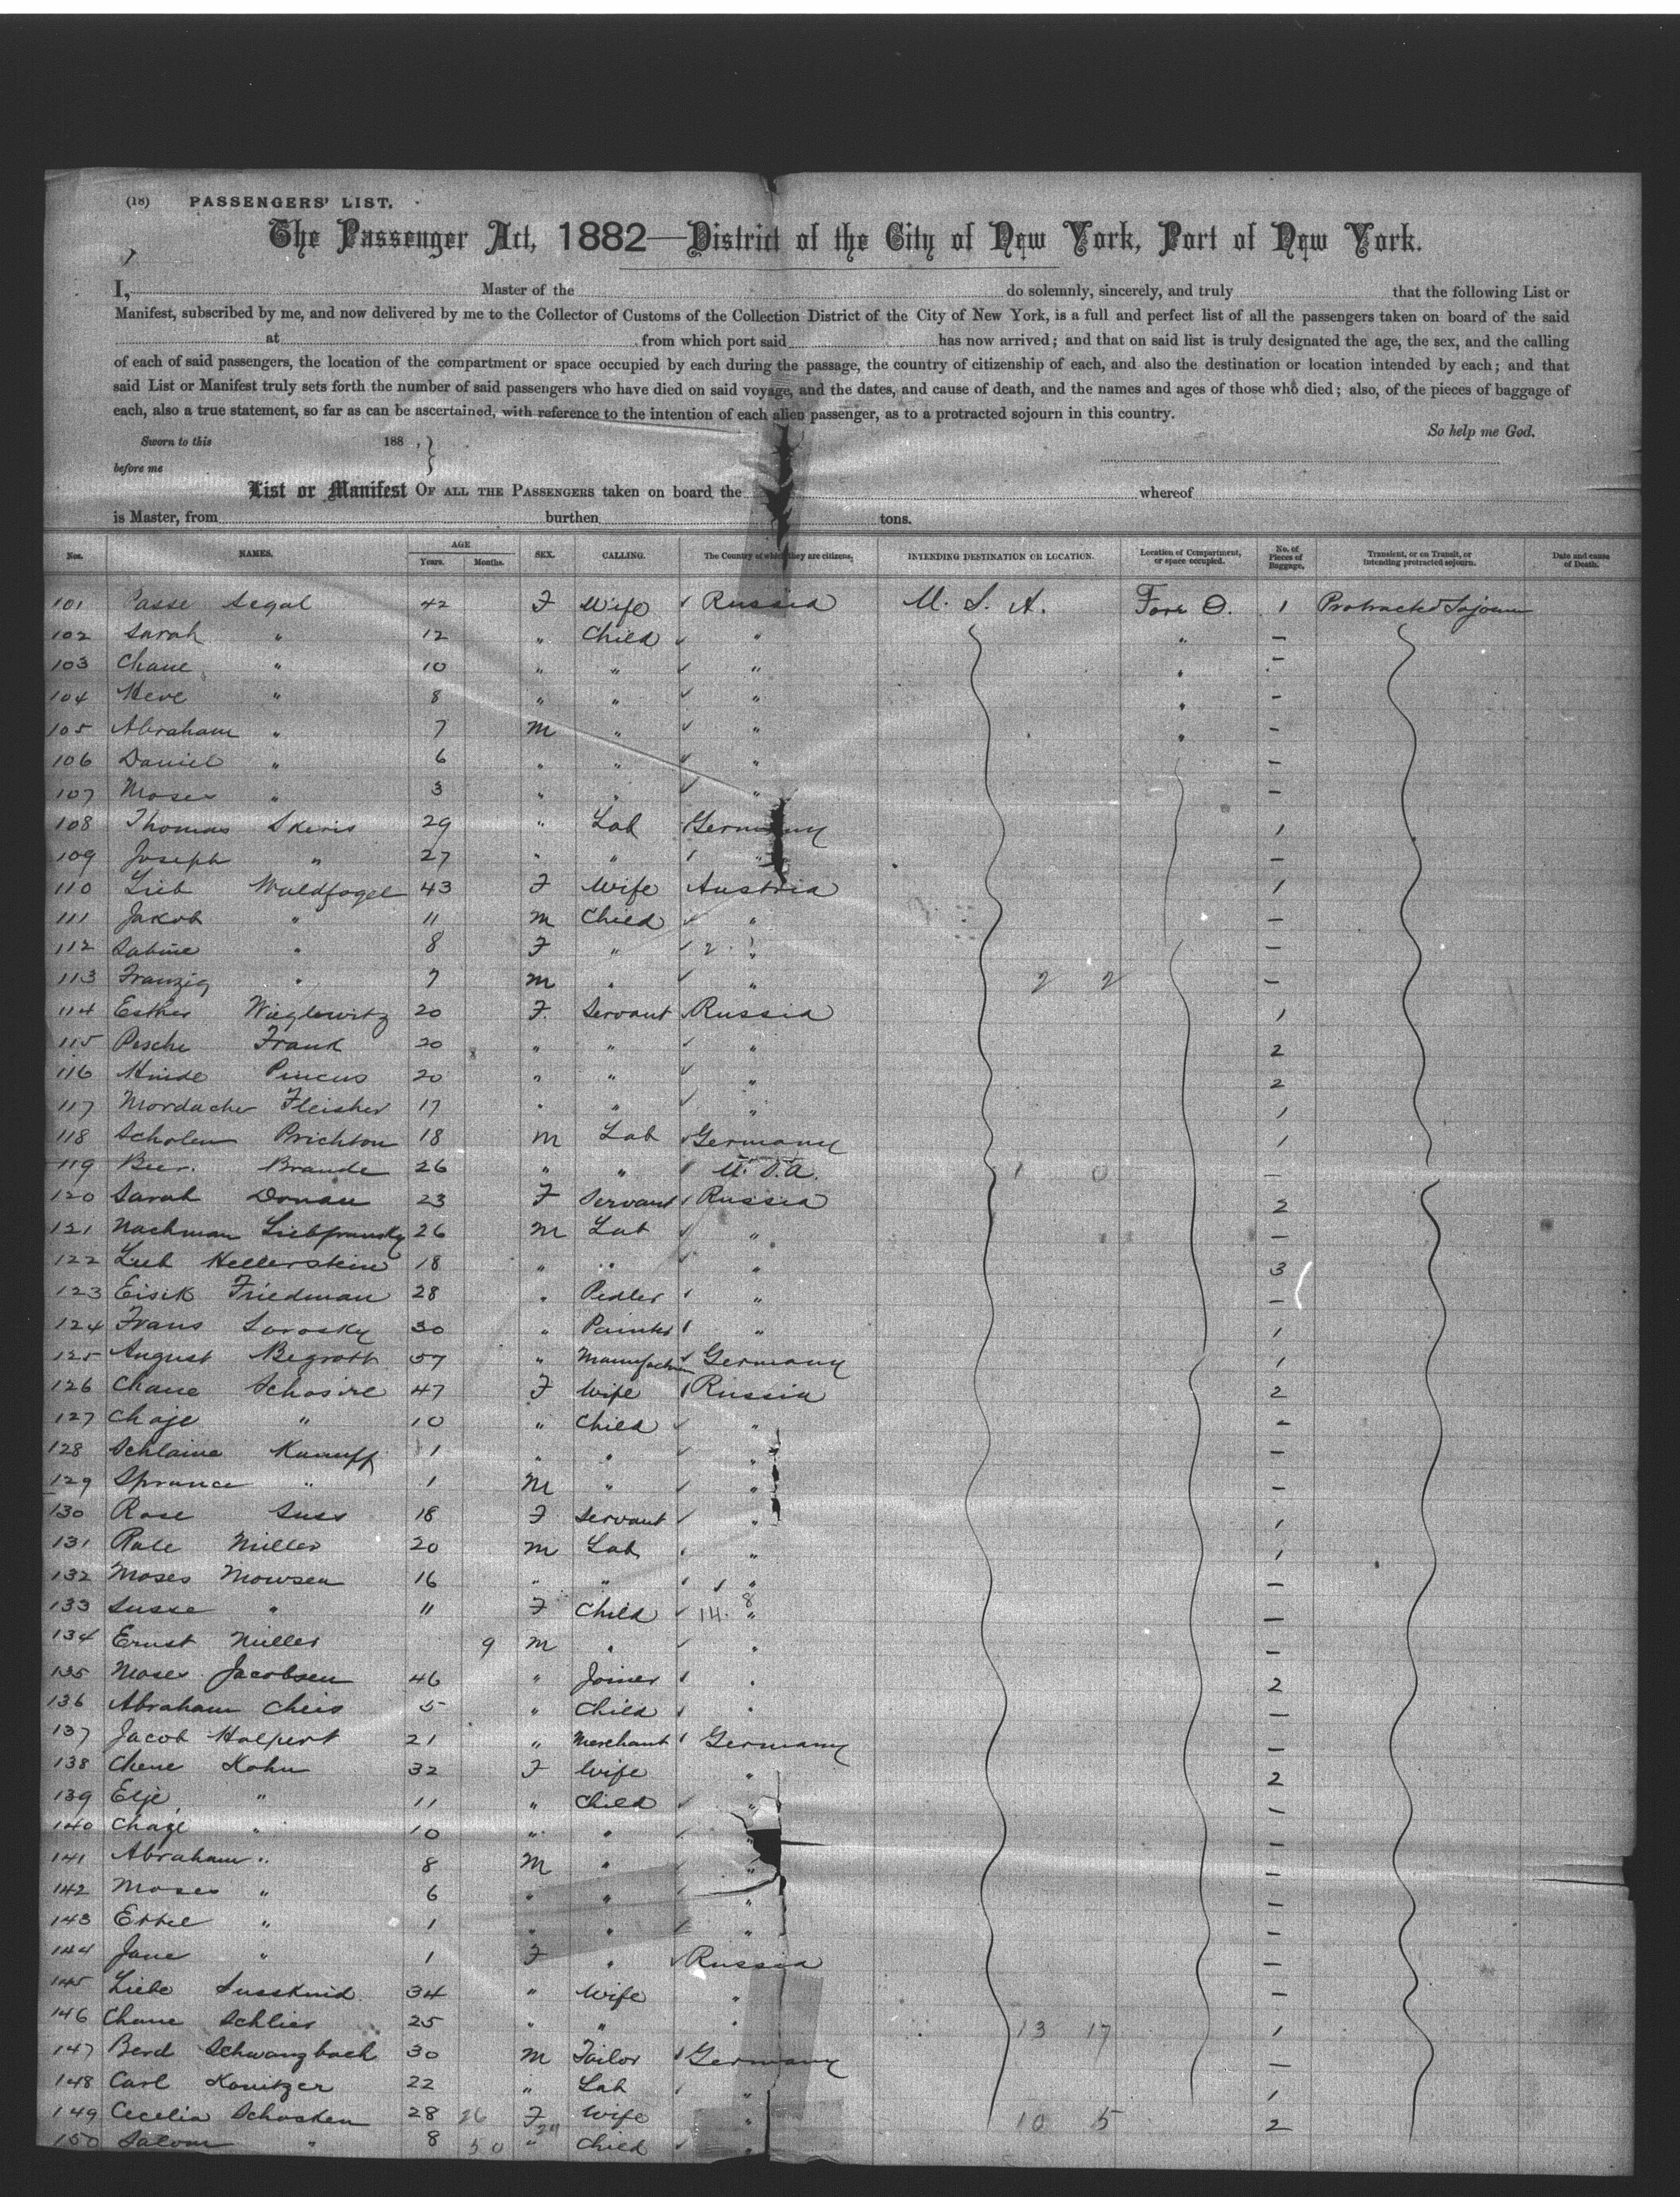 (18) PASSENGERS' LIST.
The Passenger Act, 1882—District of the City of New York, Port of New York.
I, Master of the do solemnly, sincerely, and truly that the following List or
Manifest, subscribed by me, and now delivered by me to the Collector of Customs of the Collection District of the City of New York, is a full and perfect list of all the passengers taken on board of the said
at from which port said has now arrived; and that on said list is truly designated the age, the sex, and the calling
of each of said passengers, the location of the compartment or space occupied by each during the passage, the country of citizenship of each, and also the destination or location intended by each; and that
said List or Manifest truly sets forth the number of said passengers who have died on said voyage, and the dates, and cause of death, and the names and ages of those who died; also, of the pieces of baggage of
each, also a true statement, so far as can be ascertained, with reference to the intention of each alien passenger, as to a protracted sojourn in this country.
So help me God.
Sworn to this 188 , }
before me
List or Manifest OF ALL THE PASSENGERS taken on board the whereof
is Master, from burthen tons.
Nos. NAMES. AGE Years. Months. SEX. CALLING. The Country of which they are citizens. INTENDING DESTINATION OR LOCATION. Location of Compartment, or space occupied. No. of Pieces of Baggage. Transient, or on Transit, or intending protracted sojourn. Date and cause of Death.
101 Passe Segal 42 F Wife Russia U. S. A. Fore O. 1 Protracted Sojourn
102 Sarah " 12 " Child " " —
103 Chane " 10 " " " " —
104 " 8 " " " " —
105 Abraham " 7 M " " " —
106 Daniel " 6 " " " —
107 Moses " 3 " " " —
108 Thomas Skeris 29 " Lab Germany 1
109 Joseph " 27 " " " —
110 Lieb Waldfogel 43 F Wife Austria 1
111 Jakob " 11 M Child " —
112 Sabine " 8 F " " —
113 Franzig " 7 M " " — 2 2
114 Esther Wieglewitz 20 F. Servant Russia 1
115 Pesche Frank 20 " " " 2
116 Hinde Pincus 20 " " " 2
117 Mordache Fleisher 17 " " " 1
118 Scholem Prichton 18 M Lab Germany 1
119 Beer. Brande 26 " " U.S.A. 1 0 —
120 Sarah Donau 23 F Servant Russia 2
121 Nachman 26 M Lab " —
122 Lieb Hellerstein 18 " " " 3
123 Eisik Friedman 28 " Pedler " —
124 Frans Sorosky 30 " Painter " 1
125 August Begrott 57 " Manufacturer Germany 1
126 Chane 47 F Wife Russia 2
127 Chaje " 10 " Child " —
128 Schlaine 1 " " " —
129 " 1 M " " —
130 Rose Suss 18 F Servant " 1
131 Rale Miller 20 M Lab " 1
132 Moses Mowsen 16 " " " —
133 Susse " 11 F Child 14. 8 " —
134 Ernst Miller 9 M " " —
135 Moses Jacobsen 46 " Joiner " 2
136 Abraham Cheis 5 " Child " —
137 Jacob Halpert 21 " Merchant Germany —
138 Chene Kohn 32 F Wife " 2
139 Elje " 11 " Child " —
140 Chaze " 10 " " " —
141 Abraham " 8 M " " —
142 Moses " 6 " " " —
143 Ettel " 1 " " " —
144 Jane " 1 F " Russia —
145 Liebe Susskind 34 " Wife " —
146 Chane Schlier 25 " " " 13 17 1
147 Berd Schwarzbach 30 M Tailor Germany —
148 Carl Konitzer 22 " Lab " 1
149 Cecelia Schosken 28 26 F Wife " 10 5 2
150 Salom " 8 50 " Child "